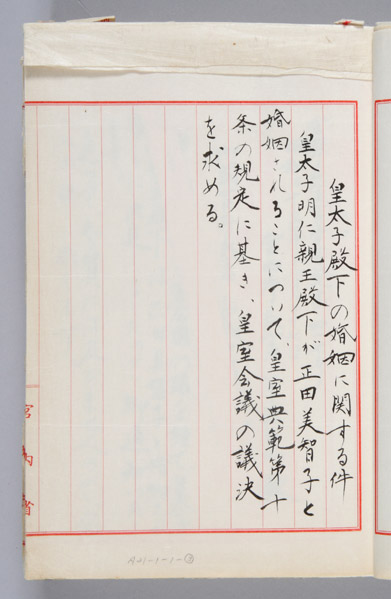 皇太子殿下の婚姻に関する件
皇太子明仁親王殿下が正田美智子と
婚姻されることについて、皇室典範第十
条の規定に基き、皇室会議の議決
を求める。
宮内省
A21-1-1-③